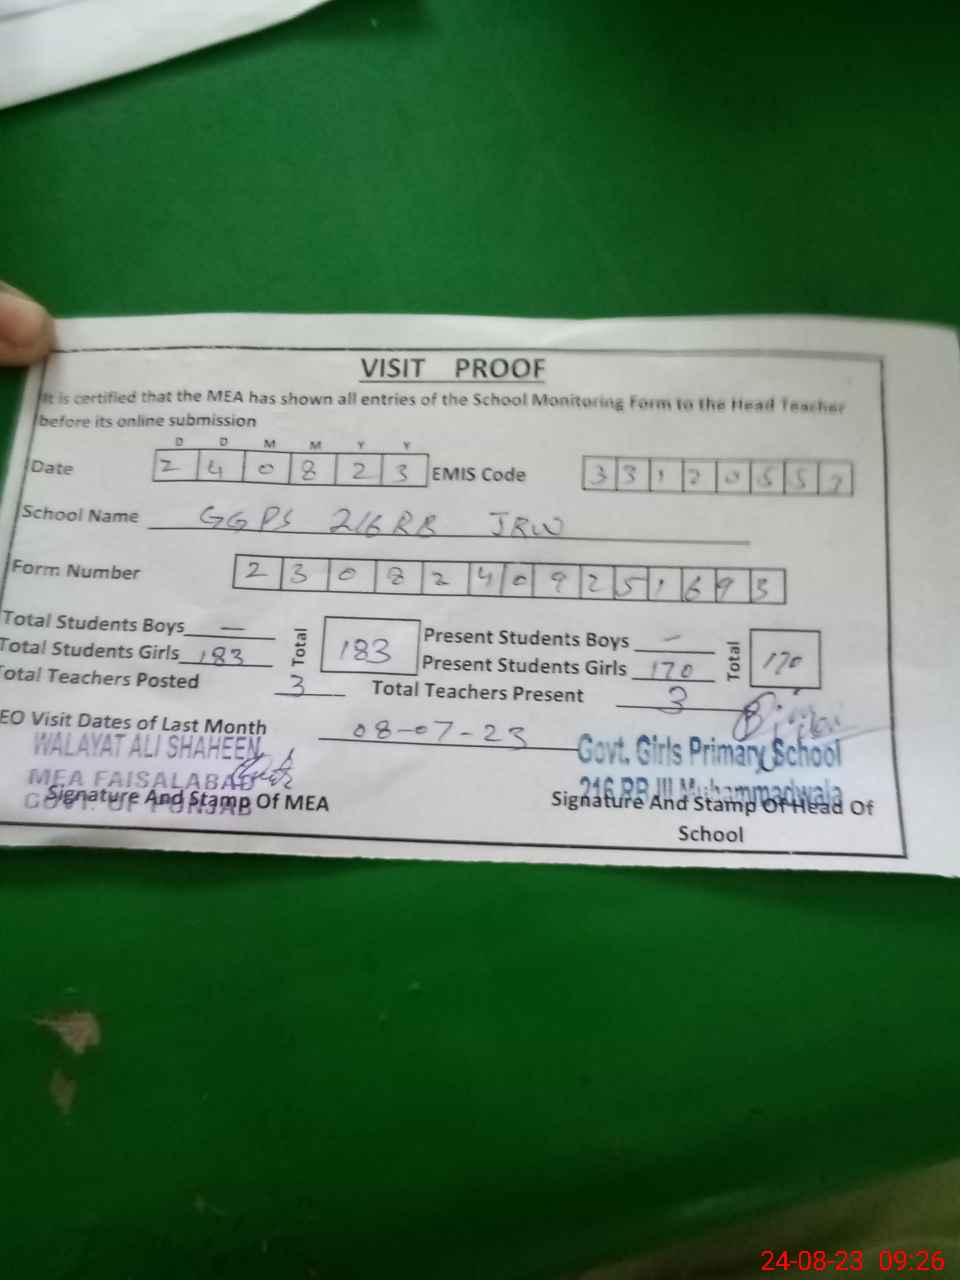 VISIT PROOF
It is certified that the MEA has shown all entries of the School Monitoring Form to the Head Teacher
before its online submission
D D M M Y Y
Date 2 4 0 8 2 3 EMIS Code 3 3 1 2 0 5 5 7
School Name GGPS 216RB JRW
Form Number 2 3 0 8 2 4 0 9 2 5 1 6 9 3
Total Students Boys — Total 183 Present Students Boys — Total 170
Total Students Girls 183 Present Students Girls 170
Total Teachers Posted 3 Total Teachers Present 3
EO Visit Dates of Last Month 08-07-23
WALAYAT ALI SHAHEEN
MEA FAISALABAD
GOVT. OF PUNJAB
Signature And Stamp Of MEA
Govt. Girls Primary School
216 RB III Muhammadwala
Signature And Stamp Of Head Of
School
24-08-23 09:26